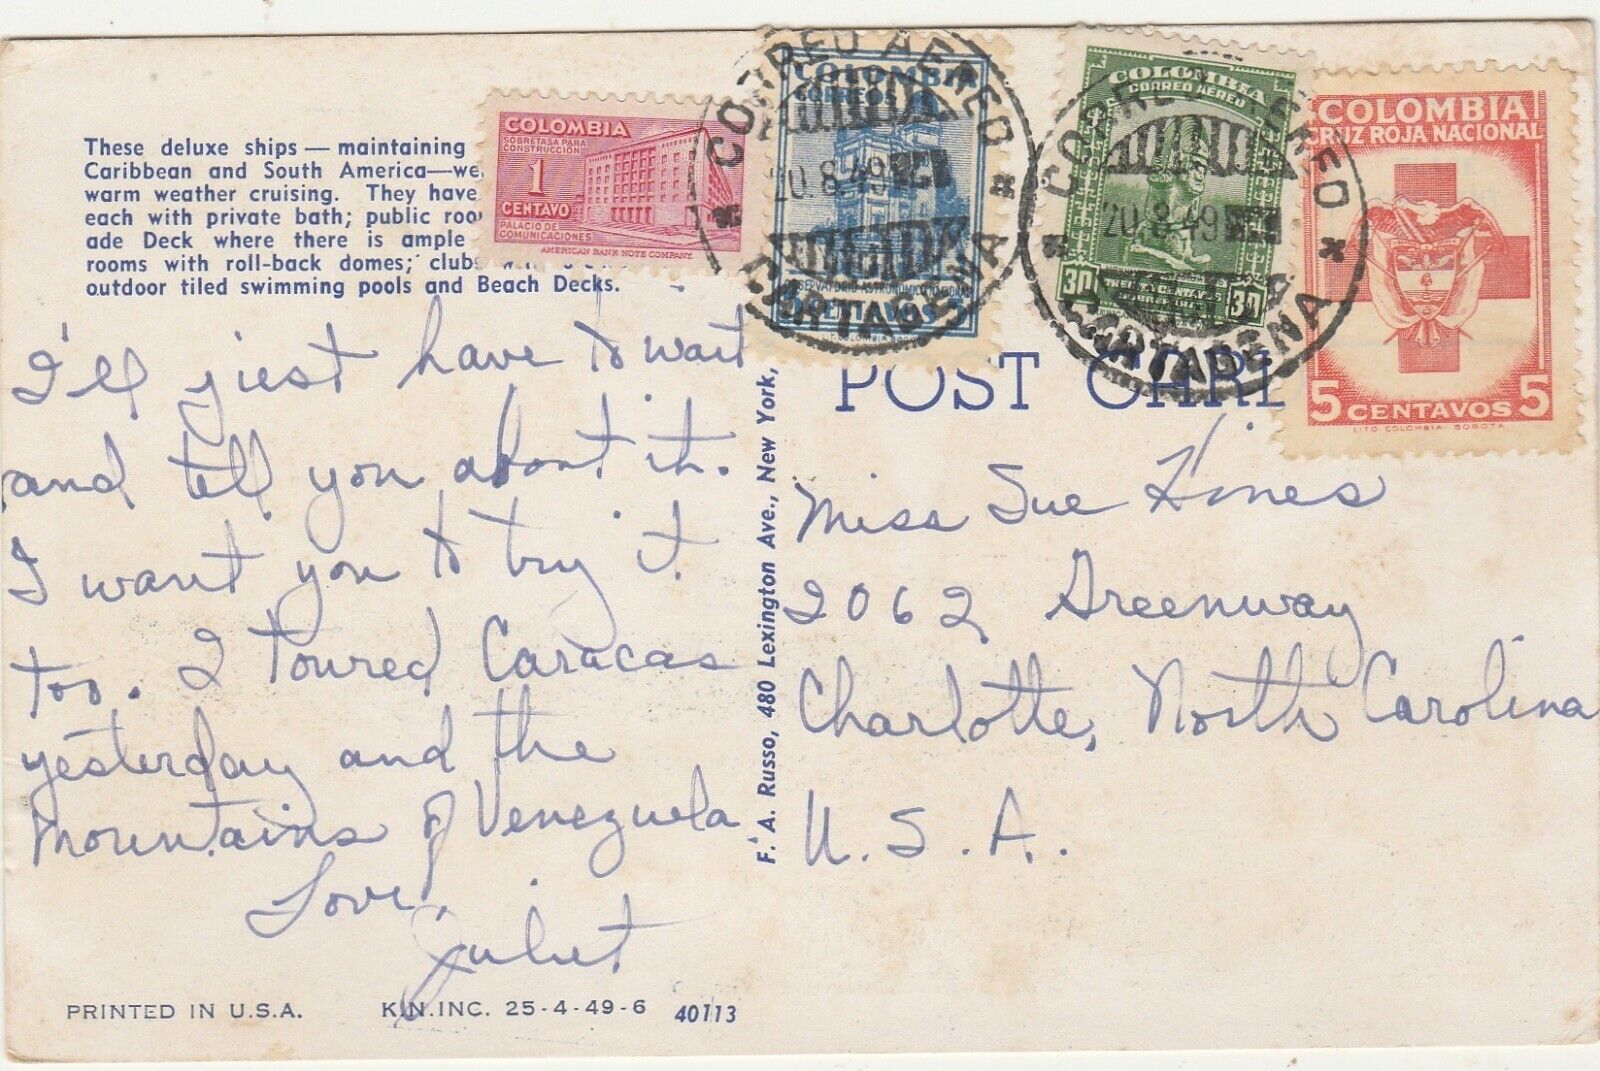 These deluxe ships — maintaining
Caribbean and South America—we
warm weather cruising. They have
each with private bath; public roo
ade Deck where there is ample
rooms with roll-back domes; club
outdoor tiled swimming pools and Beach Decks.
COLOMBIA
SOBRETASA PARA
CONSTRUCCION
1
CENTAVO
PALACIO DE
COMUNICACIONES
AMERICAN BANK NOTE COMPANY
COLOMBIA
CORREOS
OBSERVATORIO ASTRONOMICO
5 CENTAVOS 5
CORREO AEREO
20.8.49
CARTAGENA
COLOMBIA
CORREO AEREO
30 TREINTA CENTAVOS 30
CORREO AEREO
20.8.49
CARTAGENA
COLOMBIA
CRUZ ROJA NACIONAL
5 CENTAVOS 5
LITO COLOMBIA BOGOTA
POST CAR
I'll just have to wait
and tell you about it.
I want you to try it
too. I toured Caracas
yesterday and the
mountains of Venezuela
Love,
Juliet
F. A. Russo, 480 Lexington Ave., New York,
Miss Sue Hines
2062 Greenway
Charlotte, North Carolina
U.S.A.
PRINTED IN U.S.A. K.N.INC. 25-4-49-6 40113